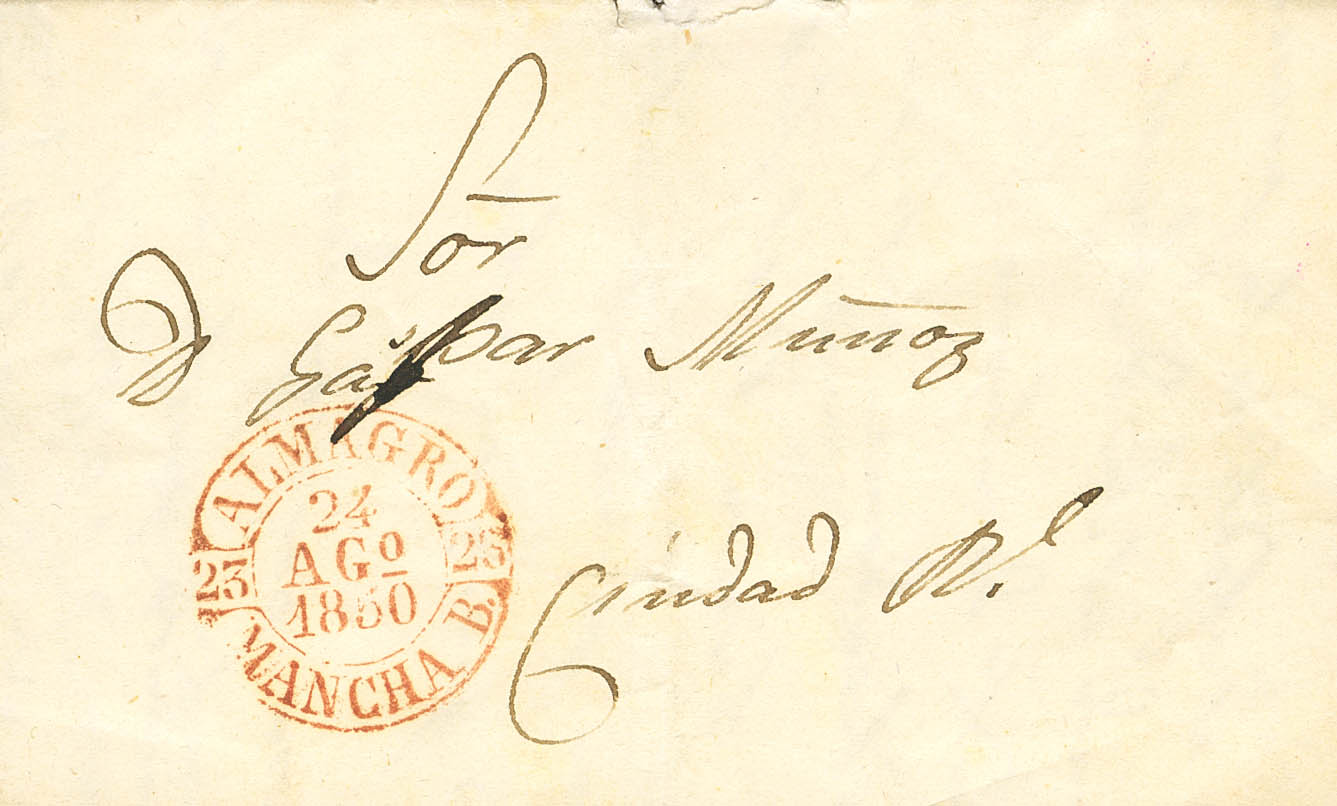 Sõr
D Gaspar Muñoz
Ciudad Rl.
ALMAGRO
23 23
24
AGo
1850
MANCHA B.